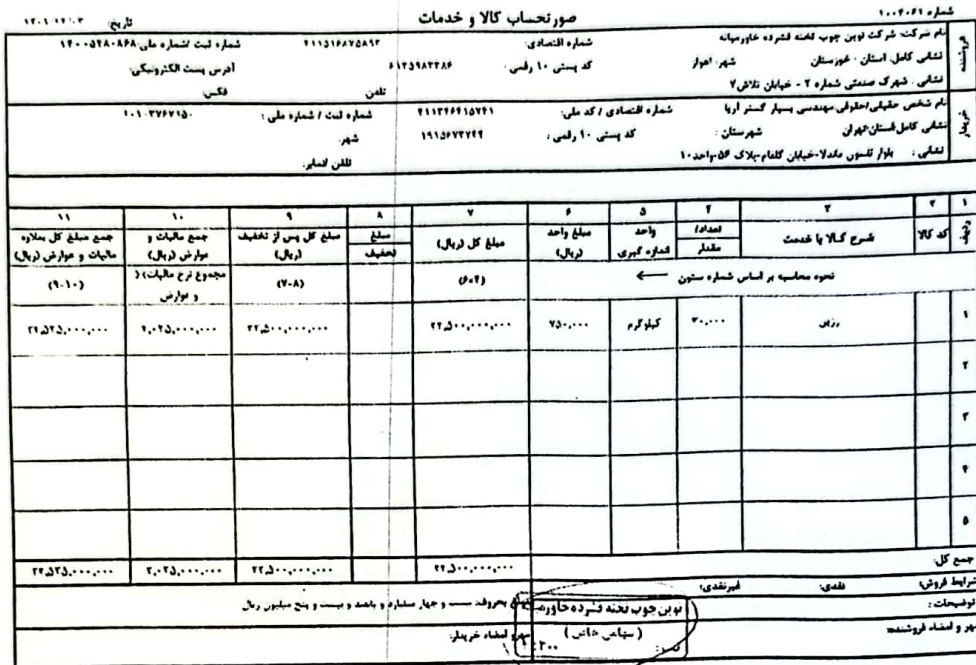 شماره ۱۰۰۴۰۶۱
صورتحساب کالا و خدمات
تاریخ: ۱۴۰۱/۱۲/۰۳
فروشنده
نام شرکت: شرکت نوین چوب تخته فشرده خاورمیانه شماره اقتصادی: ۴۱۱۵۱۶۸۷۵۸۹۳ شماره ثبت /شماره ملی:
نشانی کامل: استان : خوزستان شهر: اهواز کد پستی ۱۰ رقمی : آدرس پست الکترونیکی:
نشانی : شهرک صنعتی شماره ۲ - خیابان تلاش۷ تلفن فکس:
خریدار
نام شخص حقیقی/حقوقی:مهندسی بسپار گستر آریا شماره اقتصادی / کد ملی: شماره ثبت / شماره ملی :
نشانی کامل:استان:تهران شهرستان : کد پستی ۱۰ رقمی : شهر:
نشانی : بلوار نلسون ماندلا-خیابان گلفام-پلاک ۵۶-واحد۱۰ تلفن /نمابر:
۱ ۲ ۳ ۴ ۵ ۶ ۷ ۸ ۹ ۱۰ ۱۱
ردیف کد کالا شرح کالا یا خدمت تعداد/ مقدار واحد اندازه گیری مبلغ واحد (ریال) مبلغ کل (ریال) مبلغ تخفیف مبلغ کل پس از تخفیف (ریال) جمع مالیات و عوارض (ریال) جمع مبلغ کل بعلاوه مالیات و عوارض (ریال)
نحوه محاسبه بر اساس شماره ستون ← (۶×۴) (۷-۸) مجموع نرخ مالیات) ( و عوارض (۹-۱۰)
۱ رزین ۳۰,۰۰۰ کیلوگرم ۷۵۰,۰۰۰ ۲۲,۵۰۰,۰۰۰,۰۰۰ ۲۲,۵۰۰,۰۰۰,۰۰۰ ۲,۰۲۵,۰۰۰,۰۰۰ ۲۴,۵۲۵,۰۰۰,۰۰۰
۲
۳
۴
۵
جمع کل: ۲۲,۵۰۰,۰۰۰,۰۰۰ ۲۲,۵۰۰,۰۰۰,۰۰۰ ۲,۰۲۵,۰۰۰,۰۰۰ ۲۴,۵۲۵,۰۰۰,۰۰۰
شرایط فروش: نقدی: غیرنقدی:
توضیحات : بحروف: بیست و چهار میلیارد و پانصد و بیست و پنج میلیون ریال
مهر و امضاء فروشنده: مهر و امضاء خریدار:
نوین چوب تخته فشرده خاورمیـ
( سهامی خاص )